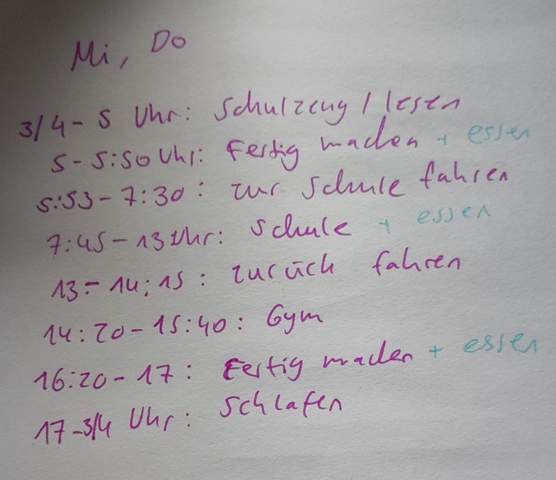 Mi, Do
3/4 - 5 Uhr: Schulzeug / lesen
5 - 5:50 Uhr: Fertig machen + essen
5:53 - 7:30: zur Schule fahren
7:45 - 13 Uhr: Schule + essen
13 - 14:15: zurück fahren
14:20 - 15:40: Gym
16:20 - 17: Fertig machen + essen
17 - 3/4 Uhr: Schlafen